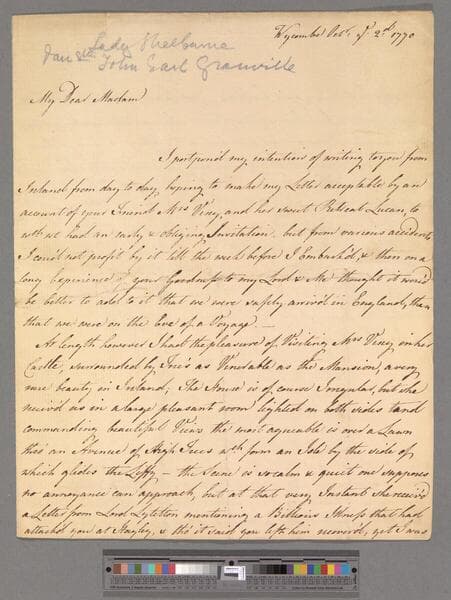 Wycombe Octr. ye 2d 1770
Lady Shelburne
Daur of John Earl Granville
My Dear Madam
I postpon'd my intention of writing to you from
Ireland from day to day, hoping to make my Letter acceptable by an
account of your Friend Mrs Vesey, and her sweet Retreat Lucan, to
wch we had an early & obliging Invitation. but from various accidents
I could not profit by it till the week before I Embark'd, & then on a
long Experience of your Goodness to my Lord & Me thought it wou'd
be better to add to it that we were safely arriv'd in England, than
that we were on the Eve of a Voyage. —
At length however I had the pleasure of Visiting Mrs Vesey in her
Castle, surrounded by Tree's as Venerable as the Mansion, a very
rare beauty in Ireland; The House is of course Irregular, but she
receiv'd us in a large pleasant room lighted on both sides & and
commanding beautiful Views the most agreable is over a Lawn
thro' an Avenue of High Trees wch form an Isle by the side of
which glides the Liffy — the Scene is so calm & quiet one supposes
no annoyance can approach, but at that very Instant she receiv'd
a Letter from Lord Lyttelton mentioning a Billious Illness that had
attack'd you at Hagley, & tho' it said you left him recover'd, yet I was